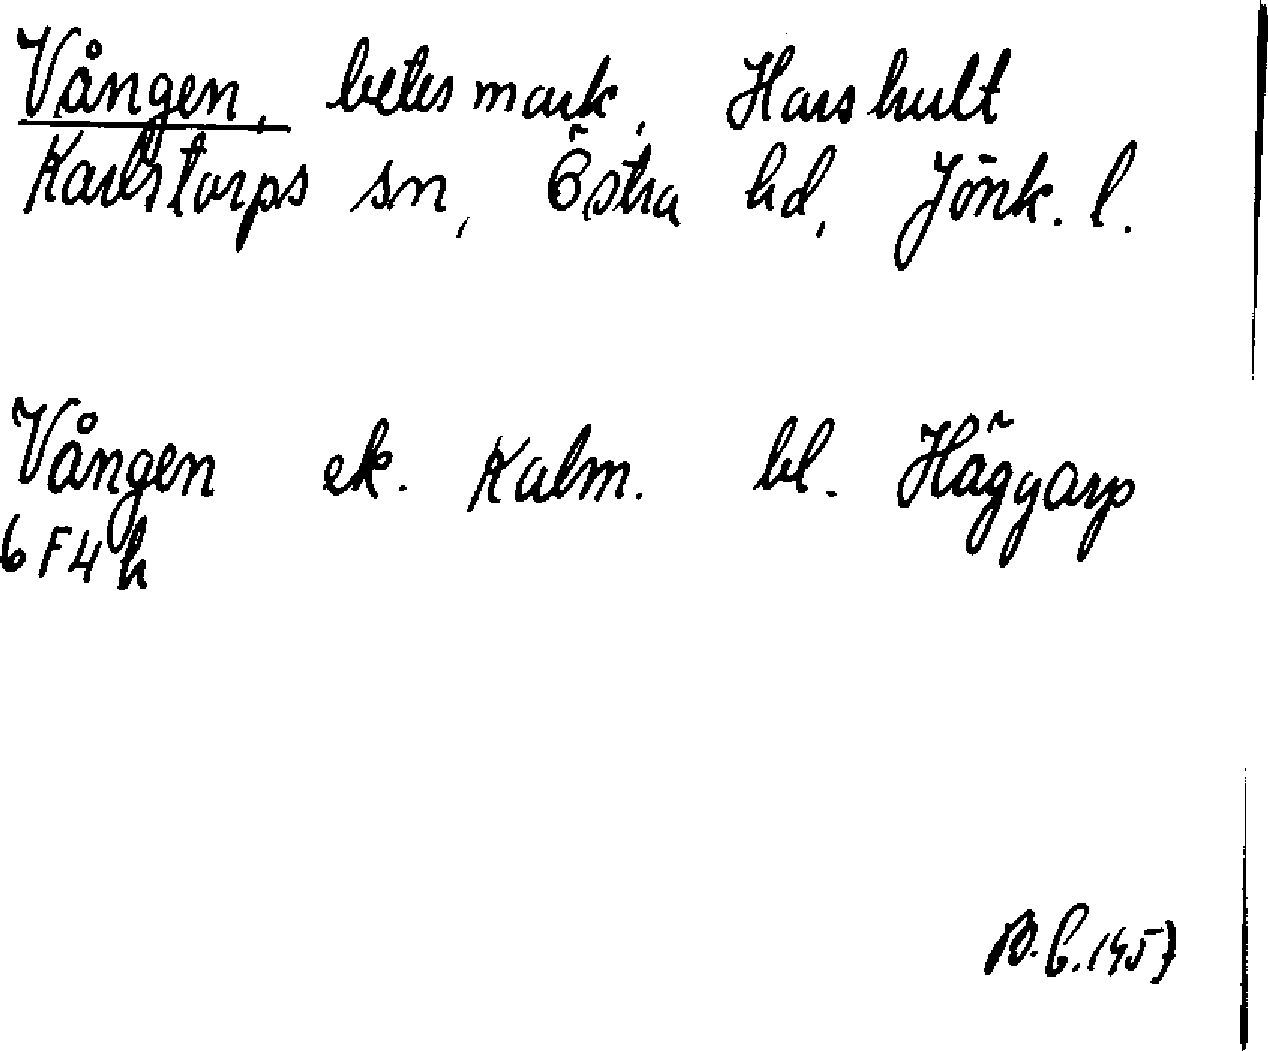 Vången, betesmark, Harshult
Karlstorps sn, Östra hd, Jönk. l.
Vången ek. Kalm. bl. Häggarp
6 F 4 h
1957